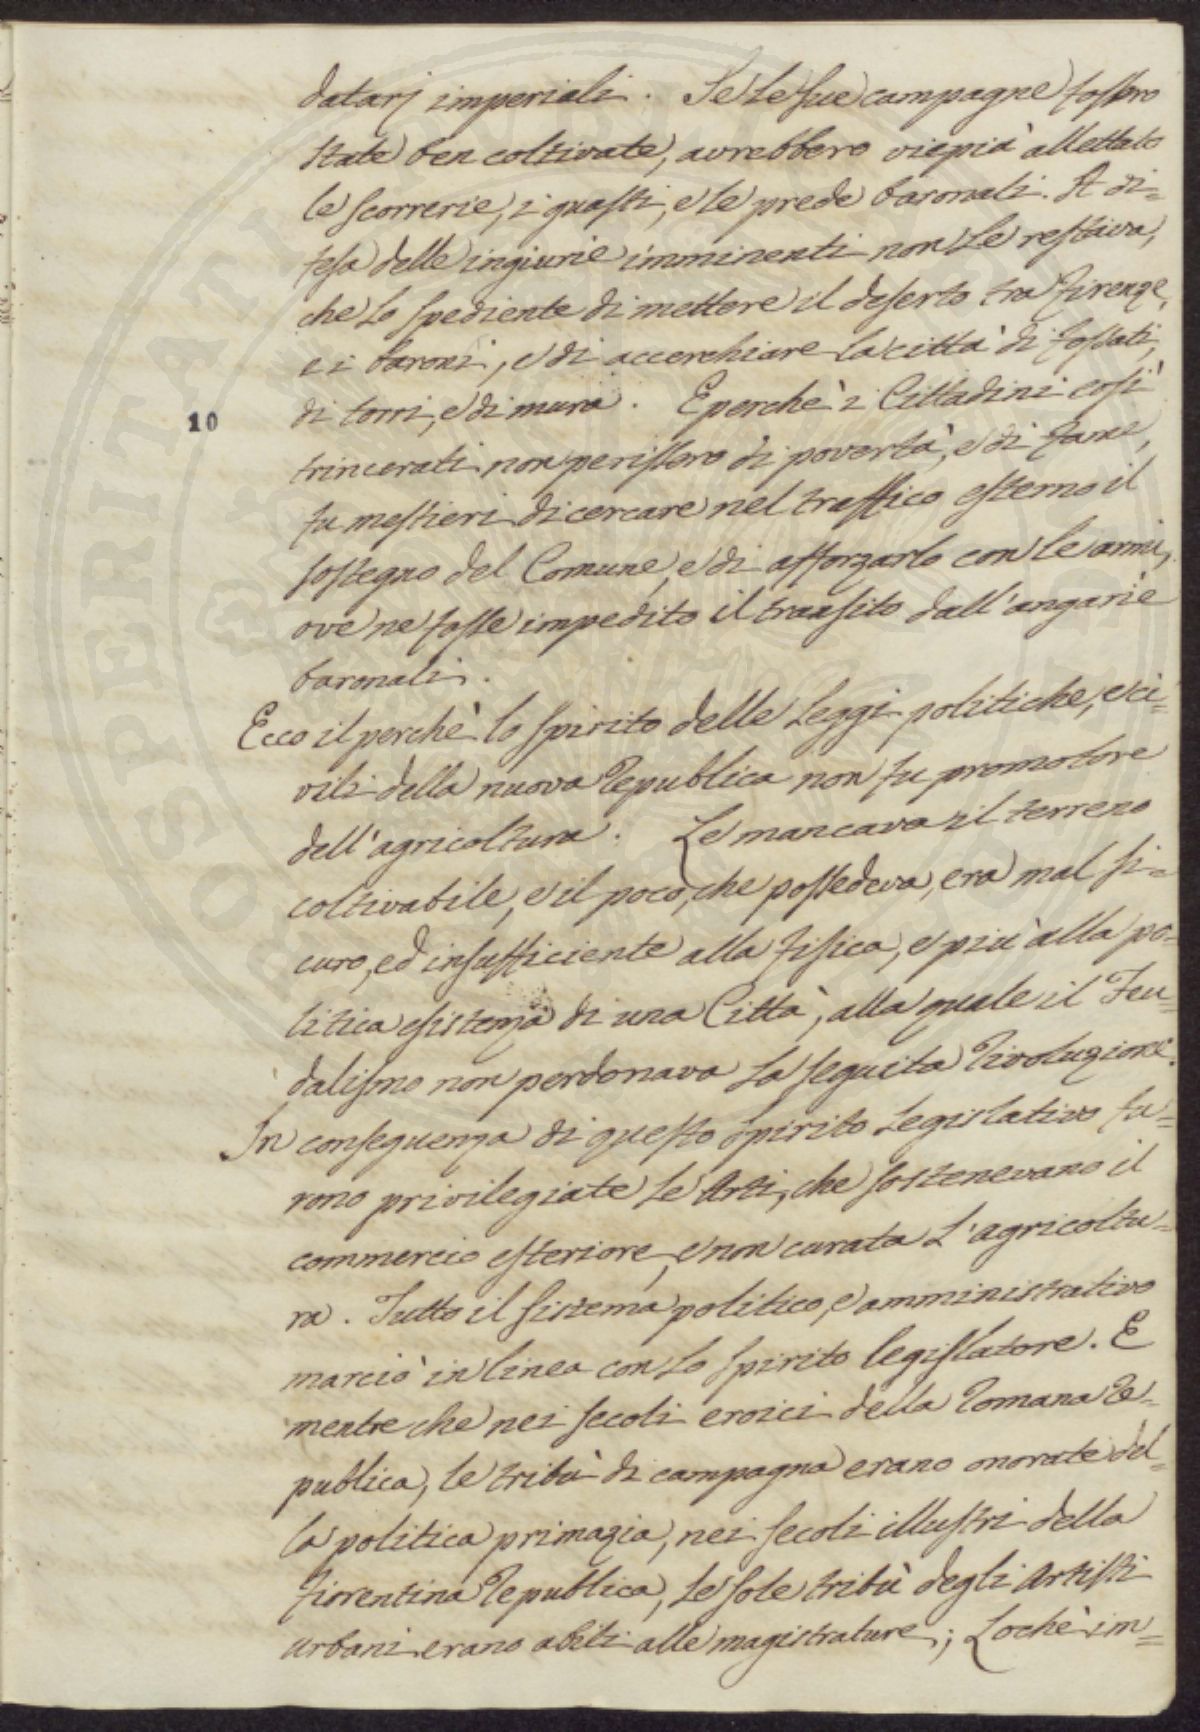 datarj imperiali. Se le sue campagne fossero
state ben coltivate, avrebbero viepià allettato
le scorrerie, i guasti, e le prede baronali. A di=
fesa delle ingiurie imminenti non le restava,
che lo spediente di mettere il deserto tra Firenze,
e i baroni, e di accerchiare la città di fossati,
di torri, e di mura. E perchè i Cittadini così
10
trincerati non perissero di povertà, e di fame,
fu mestieri di cercare nel traffico esterno il
sostegno del Comune, e di afforzarlo con le armi,
ove ne fosse impedito il transito dall'angarie
baronali.
Ecco il perchè lo spirito delle Leggi politiche, e ci=
vili della nuova Republica non fu promotore
dell'agricoltura. Le mancava il terreno
coltivabile, e il poco, che possedeva, era mal si=
curo, ed insufficiente alla fisica, e più alla po=
litica esistenza di una Città, alla quale il Feu=
dalismo non perdonava la seguita Rivoluzione.
In conseguenza di questo Spirito Legislativo fu=
rono privilegiate le Arti, che sostenevano il
commercio esteriore, e non curata l'agricoltu=
ra. Tutto il sistema politico, e amministrativo
marciò in linea con lo spirito legislatore. E
mentre che nei secoli eroici della Romana Re=
publica, le tribù di campagna erano onorate del=
la politica primazia, nei secoli illustri della
Fiorentina Republica, le sole tribù degli Artisti
urbani erano abili alle magistrature; Lochè im=
SPERITATI PUBLICAE